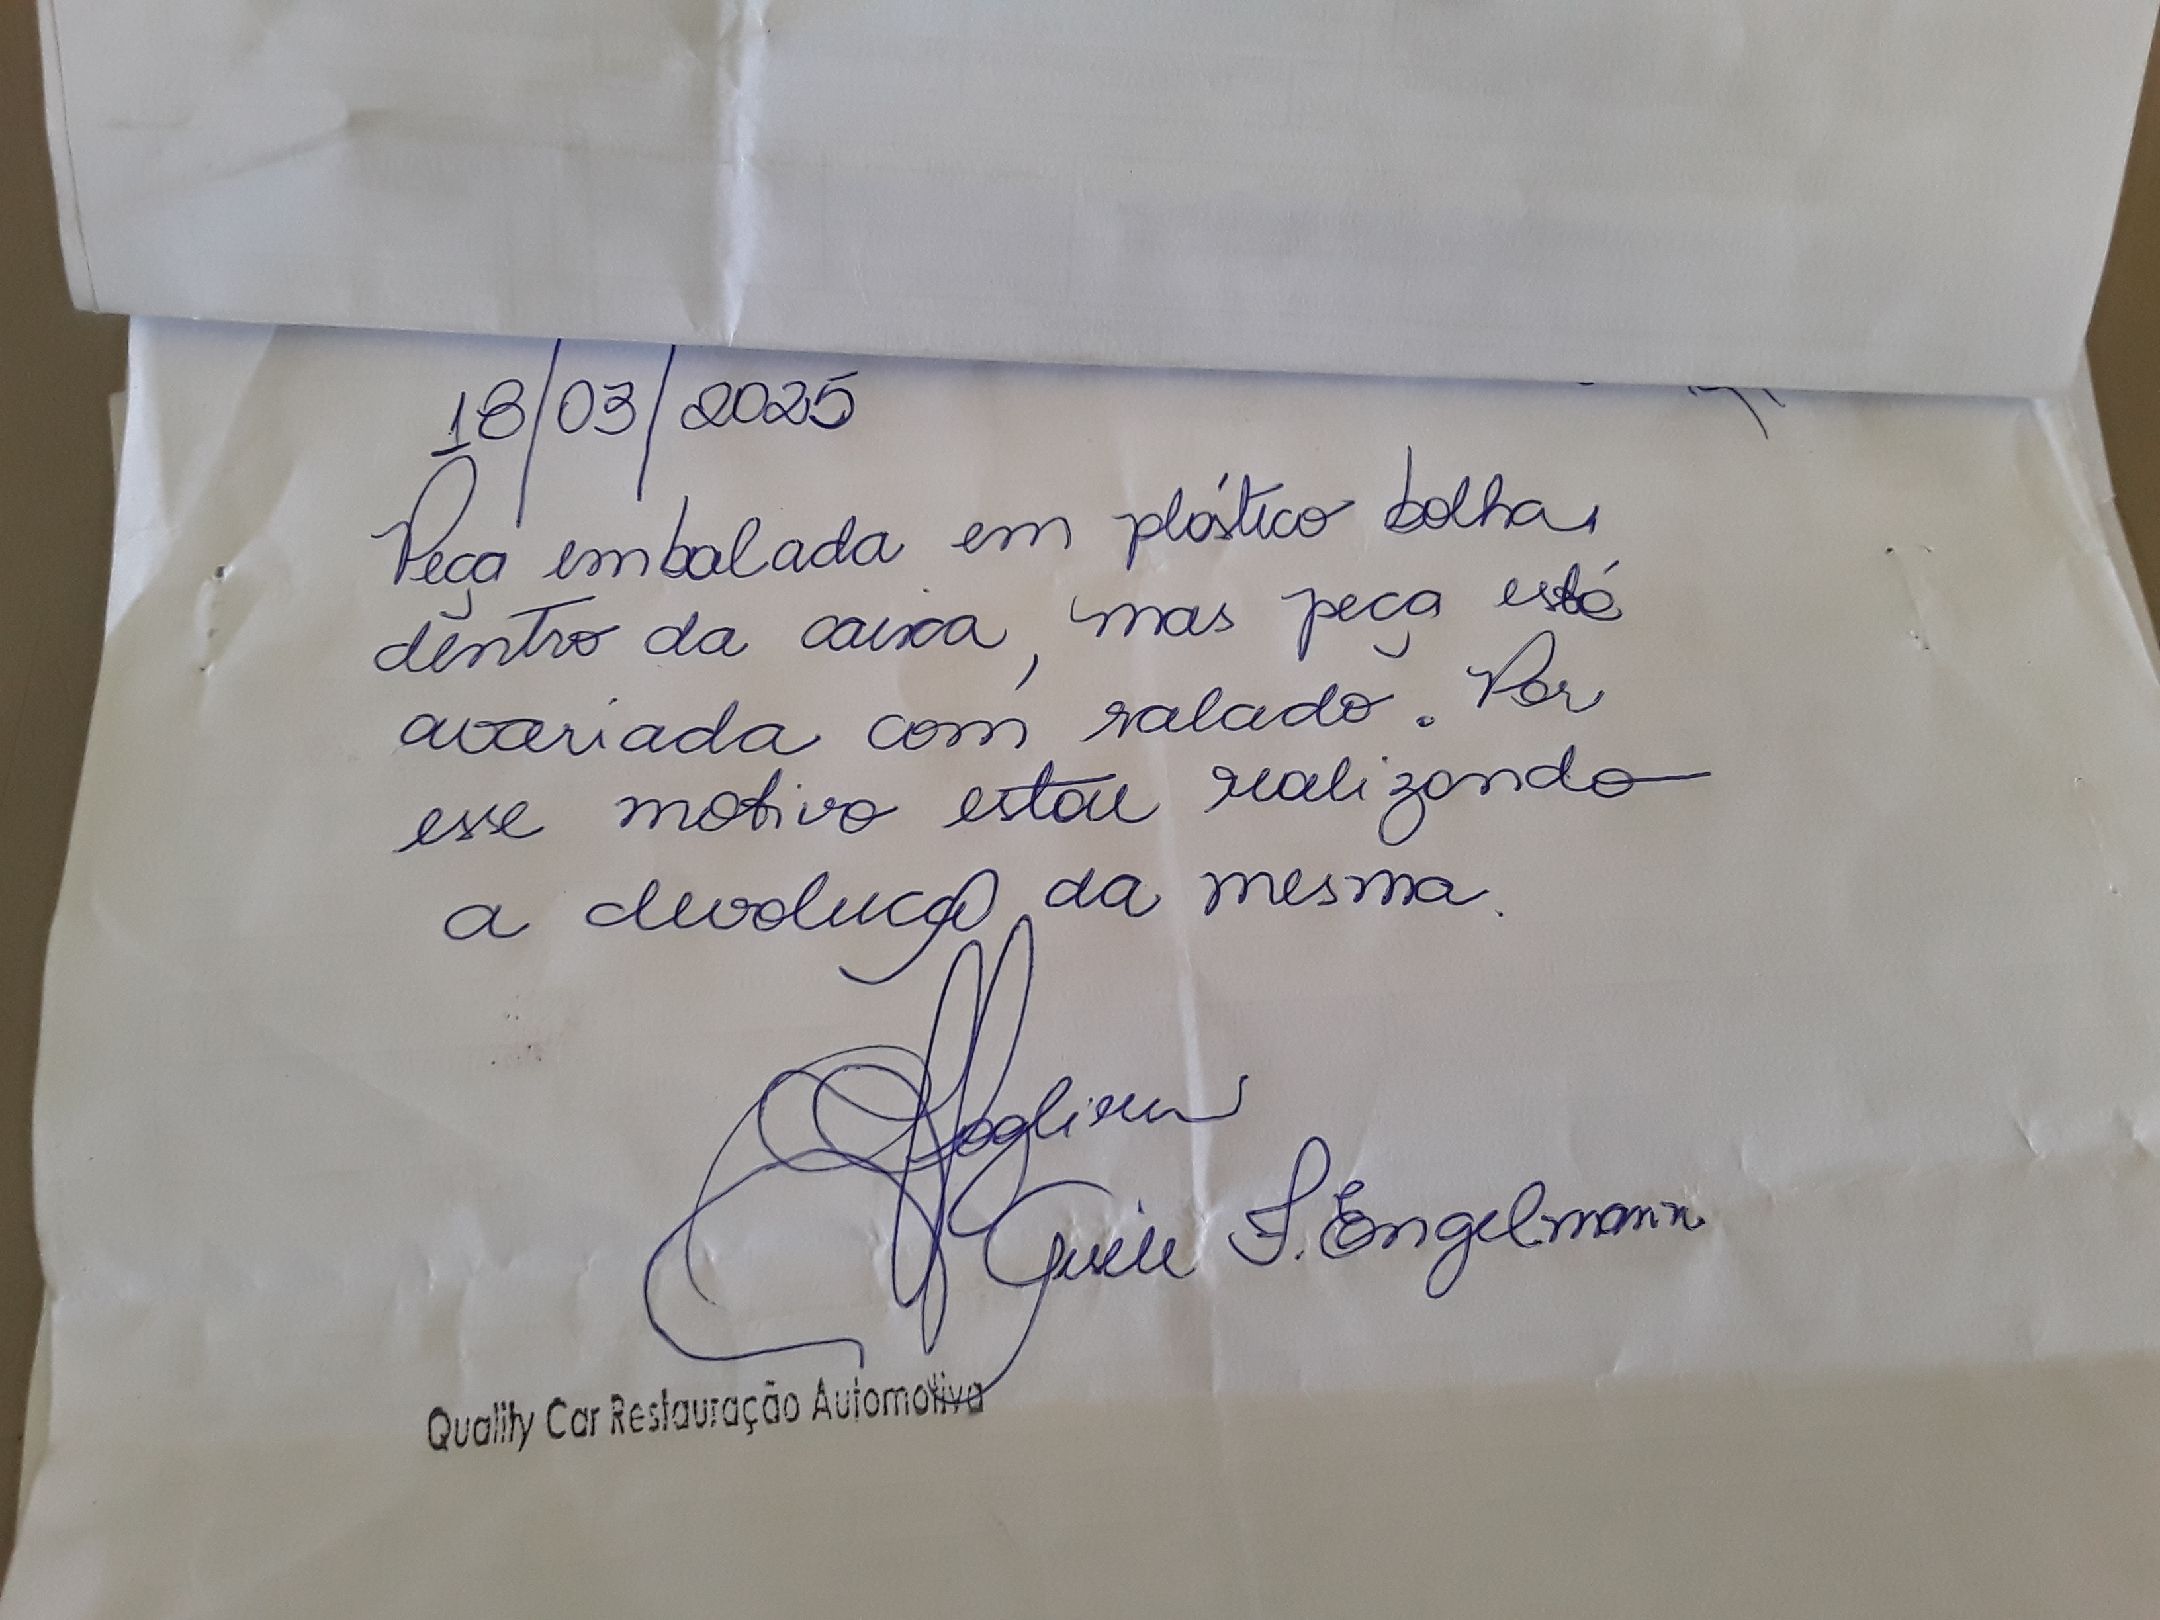 18/03/2025
Peça embalada em plástico bolha,
dentro da caixa, mas peça está
avariada com ralado. Por
esse motivo estou realizando
a devolução da mesma.
Gisele S. Engelmann
Quality Car Restauração Automotiva